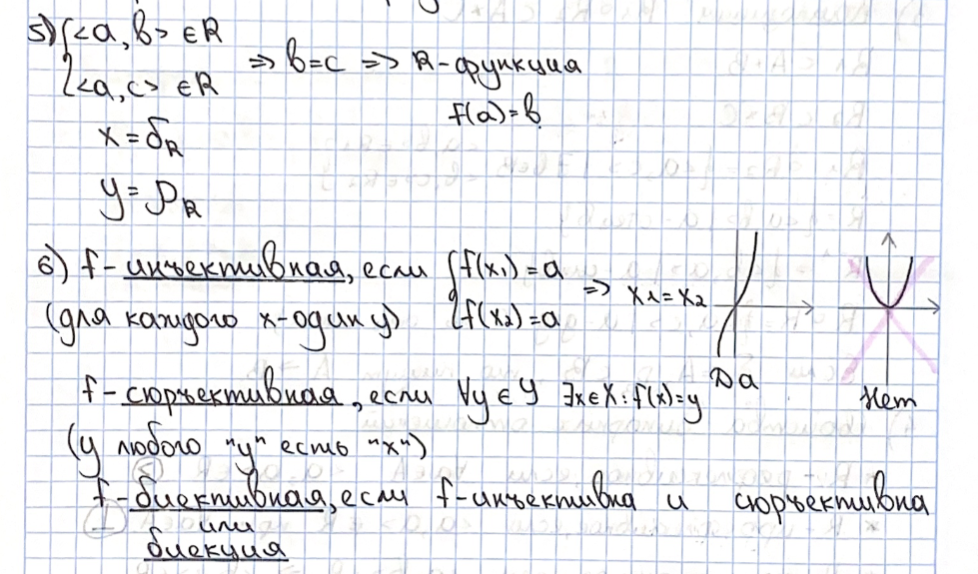 5) {<a, b> ∈ R
{<a, c> ∈ R ⇒ b=c ⇒ R-функция
f(a)=b
x = δR
y = ρR
6) f - инъективная, если {f(x₁) = a
{f(x₂) = a ⇒ x₁=x₂
(для каждого x-один y)
Да
Нет
f - сюръективная, если ∀y ∈ Y ∃x∈X: f(x)=y
(у любого "y" есть "x")
f - биективная, если f-инъективна и сюръективна
или
биекция